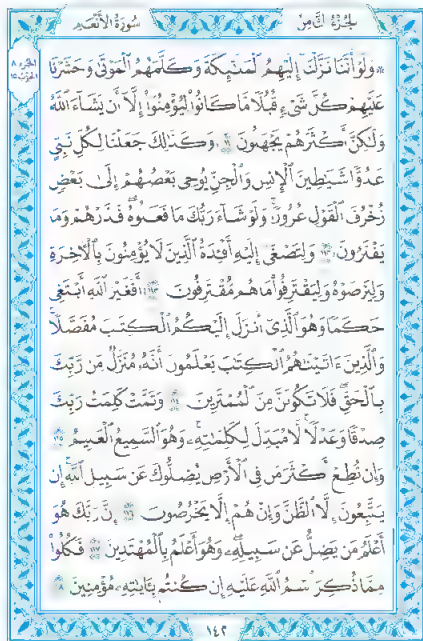 الجزء الثامن
سورة الأنعام
الجزء ٨
الحزب ١٥
۞ وَلَوْ أَنَّنَا نَزَّلْنَا إِلَيْهِمُ الْمَلَٰٓئِكَةَ وَكَلَّمَهُمُ الْمَوْتَىٰ وَحَشَرْنَا
عَلَيْهِمْ كُلَّ شَيْءٍ قُبُلًا مَّا كَانُوا لِيُؤْمِنُوٓا إِلَّآ أَن يَشَآءَ اللَّهُ
وَلَٰكِنَّ أَكْثَرَهُمْ يَجْهَلُونَ ١١١ وَكَذَٰلِكَ جَعَلْنَا لِكُلِّ نَبِيٍّ
عَدُوًّا شَيَٰطِينَ الْإِنسِ وَالْجِنِّ يُوحِي بَعْضُهُمْ إِلَىٰ بَعْضٍ
زُخْرُفَ الْقَوْلِ غُرُورًا وَلَوْ شَآءَ رَبُّكَ مَا فَعَلُوهُ فَذَرْهُمْ وَمَا
يَفْتَرُونَ ١١٢ وَلِتَصْغَىٰٓ إِلَيْهِ أَفْـِٔدَةُ الَّذِينَ لَا يُؤْمِنُونَ بِالْءَاخِرَةِ
وَلِيَرْضَوْهُ وَلِيَقْتَرِفُوا مَا هُم مُّقْتَرِفُونَ ١١٣ أَفَغَيْرَ اللَّهِ أَبْتَغِي
حَكَمًا وَهُوَ الَّذِىٓ أَنزَلَ إِلَيْكُمُ الْكِتَٰبَ مُفَصَّلًا
وَالَّذِينَ ءَاتَيْنَٰهُمُ الْكِتَٰبَ يَعْلَمُونَ أَنَّهُ مُنَزَّلٌ مِّن رَّبِّكَ
بِالْحَقِّ فَلَا تَكُونَنَّ مِنَ الْمُمْتَرِينَ ١١٤ وَتَمَّتْ كَلِمَتُ رَبِّكَ
صِدْقًا وَعَدْلًا لَّا مُبَدِّلَ لِكَلِمَٰتِهِ وَهُوَ السَّمِيعُ الْعَلِيمُ ١١٥
وَإِن تُطِعْ أَكْثَرَ مَن فِي الْأَرْضِ يُضِلُّوكَ عَن سَبِيلِ اللَّهِ إِن
يَتَّبِعُونَ إِلَّا الظَّنَّ وَإِنْ هُمْ إِلَّا يَخْرُصُونَ ١١٦ إِنَّ رَبَّكَ هُوَ
أَعْلَمُ مَن يَضِلُّ عَن سَبِيلِهِ وَهُوَ أَعْلَمُ بِالْمُهْتَدِينَ ١١٧ فَكُلُوا
مِمَّا ذُكِرَ اسْمُ اللَّهِ عَلَيْهِ إِن كُنتُم بِـَٔايَٰتِهِ مُؤْمِنِينَ ١١٨
١٤٢